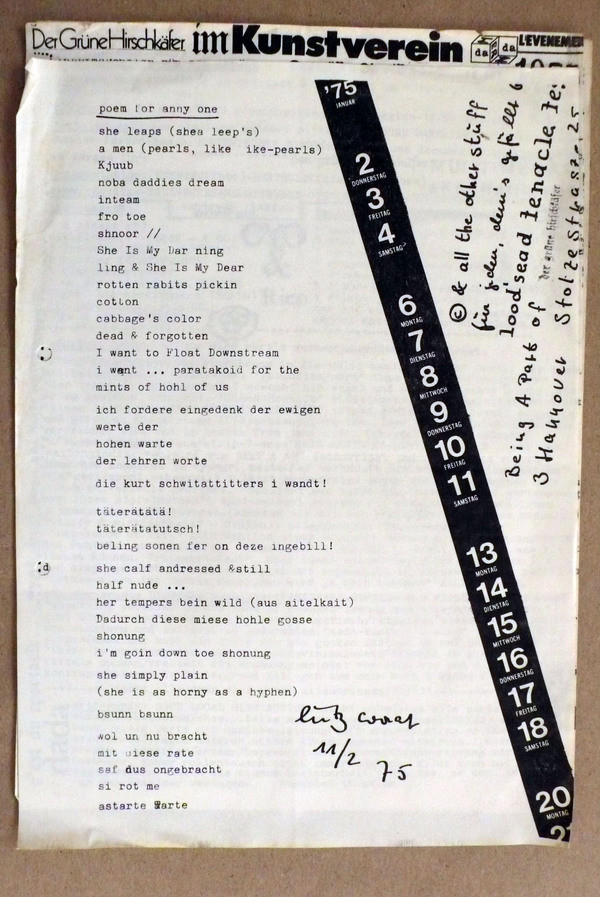 Der Grüne Hirschkäfer im Kunstverein da da L'EVENEME
poem for anny one
she leaps (shea leep's)
a men (pearls, like ike-pearls)
Kjuub
noba daddies dream
inteam
fro toe
shnoor //
She Is My Dar ning
ling & She Is My Dear
rotten rabits pickin
cotton
cabbage's color
dead & forgotten
I want to Float Downstream
i want ... paratakoid for the
mints of hohl of us
ich fordere eingedenk der ewigen
werte der
hohen warte
der lehren worte
die kurt schwitattitters i wandt!
täterätätä!
täterätatutsch!
beling sonen fer on deze ingebill!
she calf andressed &still
half nude ...
her tempers bein wild (aus aitelkait)
Dadurch diese miese hohle gosse
shonung
i'm goin down toe shonung
she simply plain
(she is as horny as a hyphen)
bsunn bsunn
wol un nu bracht
mit diese rate
saf dus ongebracht
si rot me
astarte Warte
11/2
75
'75
JANUAR
2
DONNERSTAG
3
FREITAG
4
SAMSTAG
6
MONTAG
7
DIENSTAG
8
MITTWOCH
9
DONNERSTAG
10
FREITAG
11
SAMSTAG
13
MONTAG
14
DIENSTAG
15
MITTWOCH
16
DONNERSTAG
17
FREITAG
18
SAMSTAG
20
MONTAG
21
© & all the other stuff
für jeden, dem's gfällt
Being A Part of lood'sead tenacle
der grüne hirschkäfer
3 Hannover Stolzestrasze 25